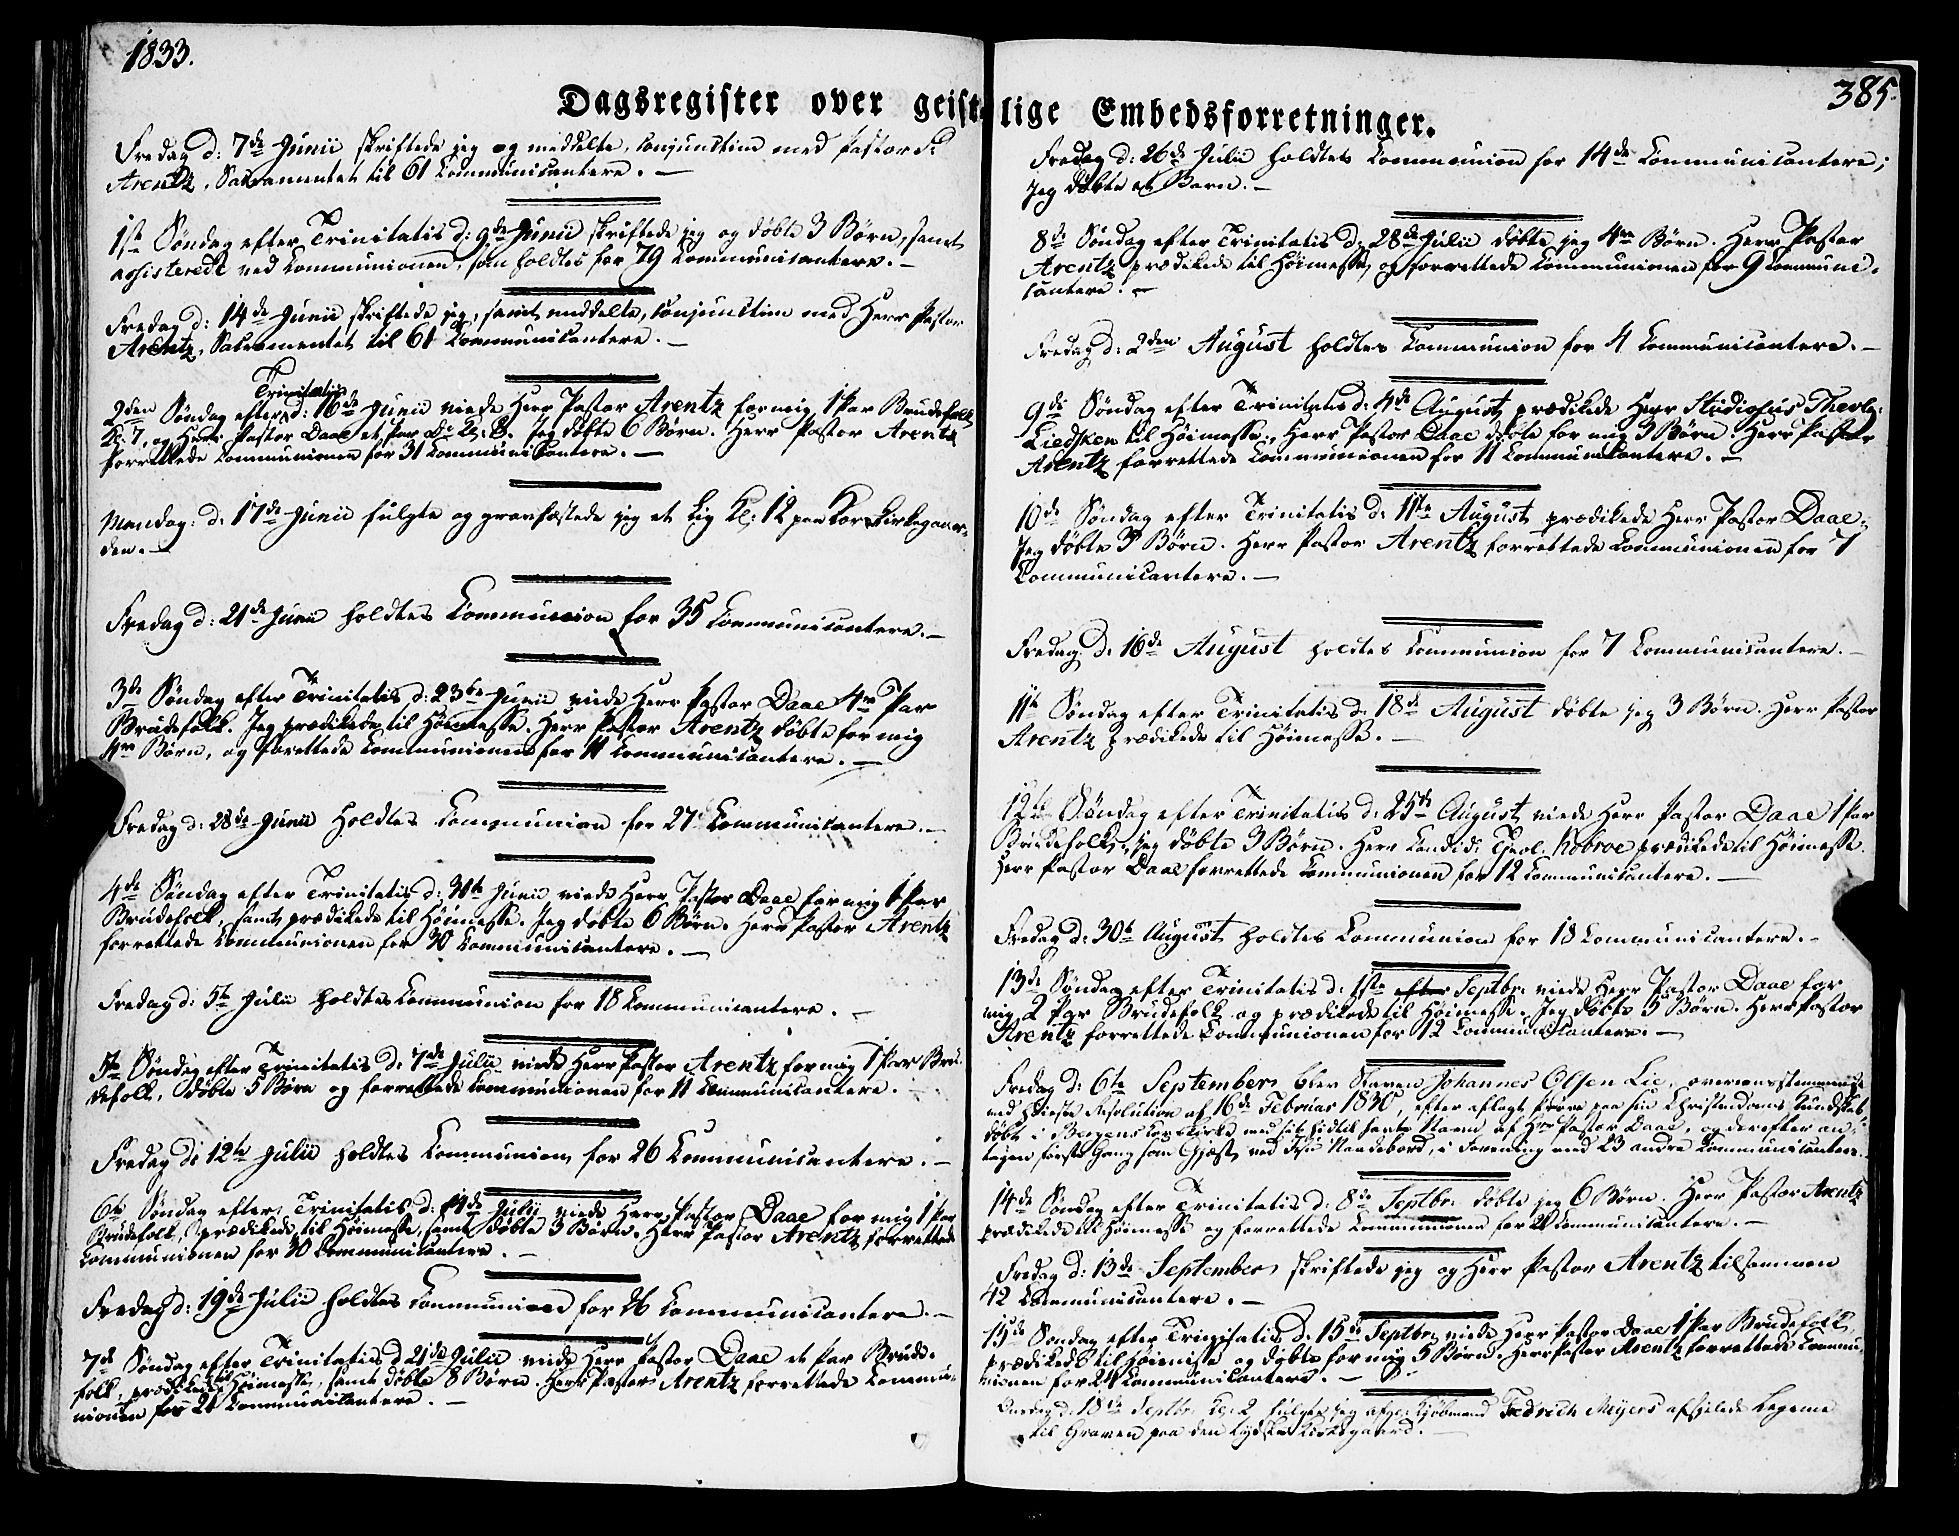 1833.
385.
Dagsregister over geistlige Embedsforretninger.
Fredag d: 7de Junii skriftede jeg og meddelte, conjunctim med Pastor
Arentz, Sacramentet til 61 Communicantere. —
1ste Søndag efter Trinitatis d: 9de Junii skriftede jeg og døbte 3 Børn, samt
assisterede ved Communionen, som holdtes for 79 Communicantere. —
Fredag d: 14de Junii skriftede jeg, samt meddelte, conjunctim med Herr Pastor
Arentz, Sacramentet til 61 Communicantere. —
Trinitatis
2den Søndag efter d: 16de Junii viede Herr Pastor Arentz for mig 1 Par Brudefolk
Kl. 7, og Herr Pastor Daae et Par Jeg døbte 6 Børn. Herr Pastor Arentz
forrettede Communionen for 31 Communicantere. —
Mandag d: 17de Junii fulgte og gravfæstede jeg et Lig Kl: 12 paa Korskirkegaar-
den. —
Fredag d: 21de Junii holdtes Communion for 35 Communicantere. —
3de Søndag efter Trinitatis d: 23de Junii viede Herr Pastor Daae 4re Par
Brudefolk. Jeg prædikede til Høimesse. Herr Pastor Arentz døbte for mig
4re Børn, og forrettede Communionen for 11 Communicantere. —
Fredag d: 28de Junii holdtes Communion for 27 Communicantere. —
4de Søndag efter Trinitatis d: 30te Junii viede Herr Pastor Daae for mig 1 Par
Brudefolk, samt prædikede til Høimesse. Jeg døbte 6 Børn. Herr Pastor Arentz
forrettede Communionen for 30 Communicantere. —
Fredag d: 5te Julii holdtes Communion for 18 Communicantere. —
5te Søndag efter Trinitatis d: 7de Julii viede Herr Pastor Arentz for mig 1 Par Bru-
defolk, døbte 5 Børn og forrettede Communionen for 11 Communicantere. —
Fredag d: 12te Julii holdtes Communion for 26 Communicantere. —
6te Søndag efter Trinitatis d: 14de Julij viede Herr Pastor Daae for mig 1 Par
Brudefolk, prædikede til Høimesse, samt døbte 3 Børn. Herr Pastor Arentz forrettede
Communionen for 30 Communicantere. —
Fredag d: 19de Julii holdtes Communion for 26 Communicantere. —
7de Søndag efter Trinitatis d 21de Julii viede Herr Pastor Daae et Par Brude-
folk, prædikede til Høimesse, samt døbte 8 Børn. Herr Pastor Arentz forrettede Commu-
nionen for 21 Communicantere. —
Fredag d: 26de Julii holdtes Communion for 14de Communicantere;
Jeg døbte et Barn. —
8de Søndag efter Trinitatis d: 28de Julii døbte jeg 4re Børn. Herr Pastor
Arentz prædikede til Høimesse, og forrettede Communionen for 9 Communi-
cantere. —
Fredag d: 2den August holdtes Communion for 4 Communicantere. —
9de Søndag efter Trinitatis d: 4de August prædikede Herr Studiosus Theolg:
Liedsken til Høimesse. Herr Pastor Daae døbte for mig 3 Børn. Herr Pastor
Arentz forrettede Communionen for 11 Communicantere. —
10de Søndag efter Trinitatis d: 11te August prædikede Herr Pastor Daae.
Jeg døbte 3 Børn. Herr Pastor Arentz forrettede Communionen for 7
Communicantere. —
Fredag d: 16de August holdtes Communion for 7 Communicantere. —
11te Søndag efter Trinitatis d: 18de August døbte jeg 3 Børn. Herr Pastor
Arentz prædikede til Høimesse. —
12te Søndag efter Trinitatis d: 25de August viede Herr Pastor Daae 1 Par
Brudefolk, jeg døbte 3 Børn. Herr Candid: Theol. Kobroe prædikede til Høimesse.
Herr Pastor Daae forrettede Communionen for 12 Communicantere. —
Fredag d: 30te August holdtes Communion for 18 Communicantere. —
13de Søndag efter Trinitatis d: 1ste Septbr: viede Herr Pastor Daae for
mig 2 Par Brudefolk og prædikede til Høimesse. Jeg døbte 5 Børn. Herr Pastor
Arentz forrettede Communionen for 12 Communicantere. —
Fredag d: 6te September blev Slaven Johannes Olsen Lie, overensstemmende
med høieste Resolution af 16de Februar 1830, efter aflagt Prøve paa sin Christendoms Kundskab,
døbt i Bergens Korskirke med sit hidtil førte Navn af Hr Pastor Daae, og derefter an-
tagen første Gang som Gjæst ved Jesu Naadebord, i Forening med 23 andre Communicantere.
14de Søndag efter Trinitatis d: 8de Septbr: døbte jeg 6 Børn. Herr Pastor Arentz
prædikede til Høimesse og forrettede Communionen for 21 Communicantere. —
Fredag d: 13de September skriftede jeg og Herr Pastor Arentz tilsammen
42 Communicantere. —
15de Søndag efter Trinitatis d. 15de Septbr: viede Herr Pastor Daae 1 Par Brudefolk
prædikede til Høimesse og døbte for mig 5 Børn. Herr Pastor Arentz forrettede Commu-
nionen for 24 Communicantere. —
Onsdag d. 18de Septbr: Kl: 2 fulgte jeg afg: Kjøbmand Fredrich Meyers afsjelede Legeme
til Graven paa den tydske Kirkegaard. —